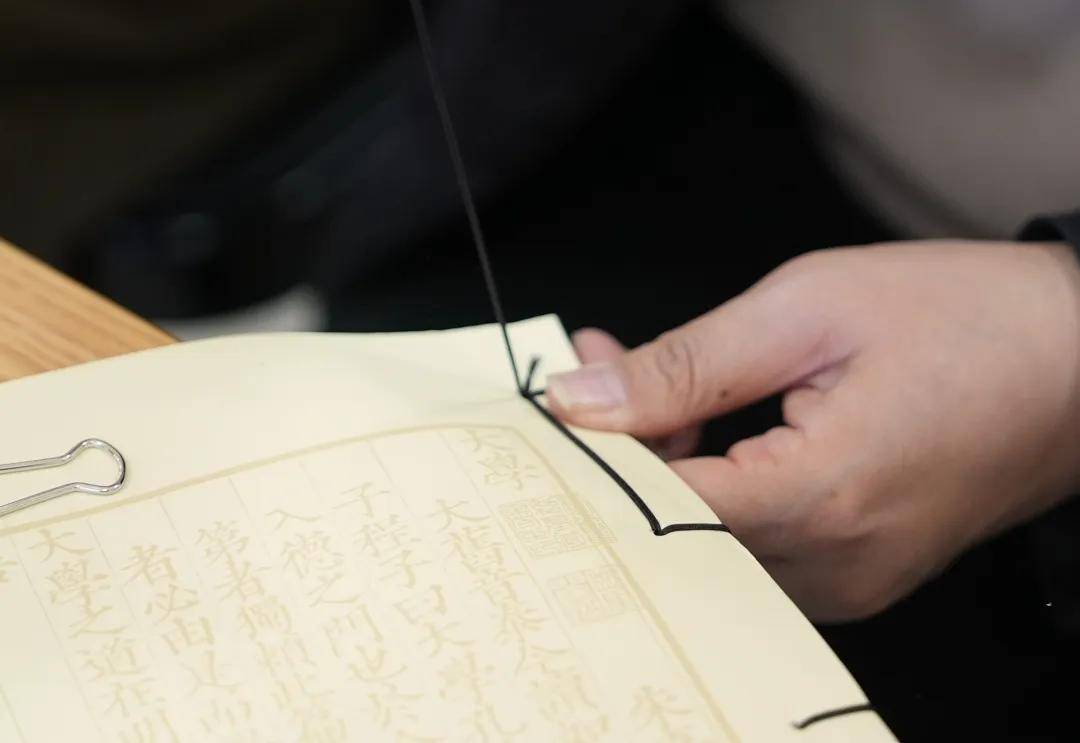 大學 朱
大舊音泰今讀如
子程子曰大學孔
入德之門也於
第者獨賴此篇
者必由是而
大學之道在明